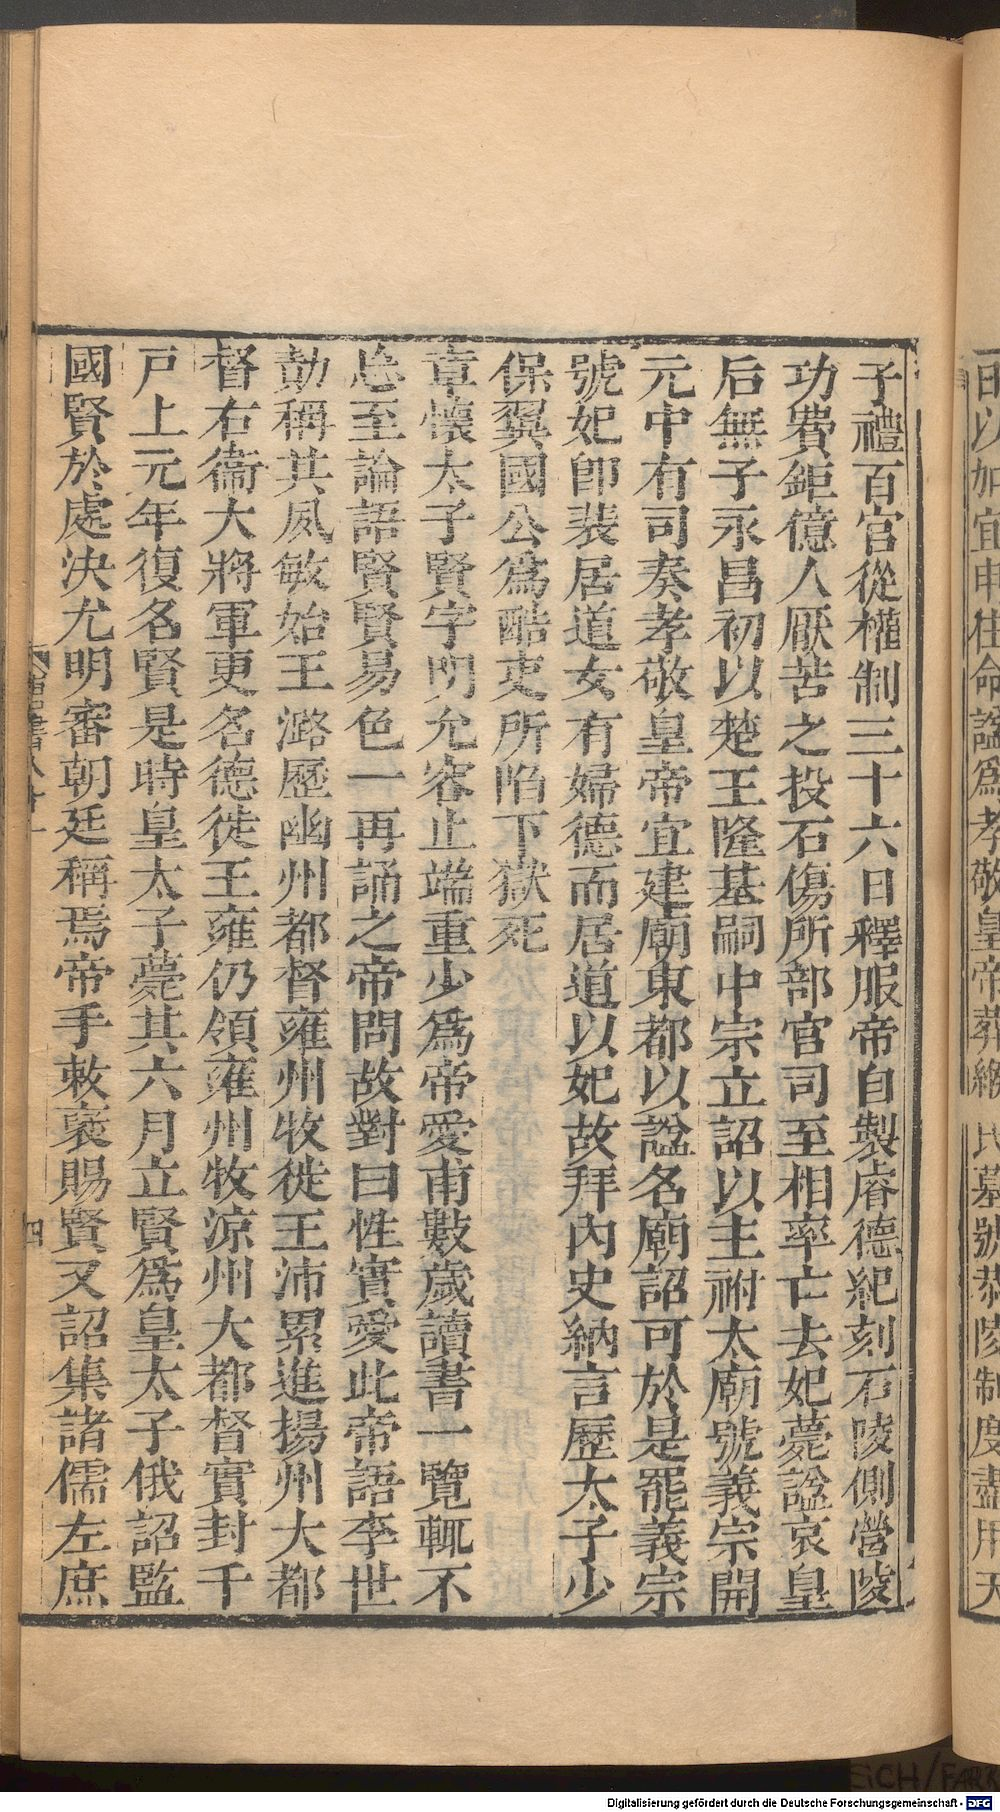 子禮百官從權制三十六日釋服帝自製睿德紀刻石陵側營陵
功費鉅億人厭苦之投石傷所部官司至相率亡去妃薨諡哀皇
后無子永昌初以楚王隆基嗣中宗立詔以主祔太廟號義宗開
元中有司奏孝敬皇帝宜建廟東都以諡名廟詔可於是罷義宗
號妃卽裴居道女有婦德而居道以妃故拜內史納言歷太子少
保翼國公爲酷吏所陷下獄死
章懷太子賢字明允容止端重少爲帝愛甫數歲讀書一覽輒不
忘至論語賢賢易色一再誦之帝問故對曰性實愛此帝語李世
勣稱其夙敏始王潞歷幽州都督雍州牧徙王沛累進揚州大都
督右衞大將軍更名德徙王雍仍領雍州牧涼州大都督實封千
戸上元年復名賢是時皇太子薨其六月立賢爲皇太子俄詔監
國賢於處決尤明審朝廷稱焉帝手敕褒賜賢又詔集諸儒左庶
四
宜申往命諡爲孝敬皇帝葬緱氏墓號恭陵制度盡用天
Digitalisierung gefördert durch die Deutsche Forschungsgemeinschaft - DFG